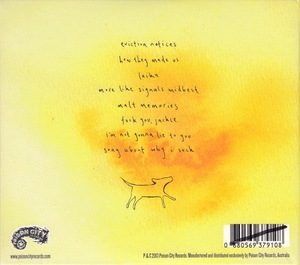 eviction notices
how they made us
laika
more like signals midwest
malt memories
fuck you, jackie
i'm not gonna lie to you
song about why i suck
POISON CITY
www.poisoncityrecords.com
P & C 2013 Poison City Records. Manufactured and distributed exclusively by Poison City Records, Australia
0 680569 379108